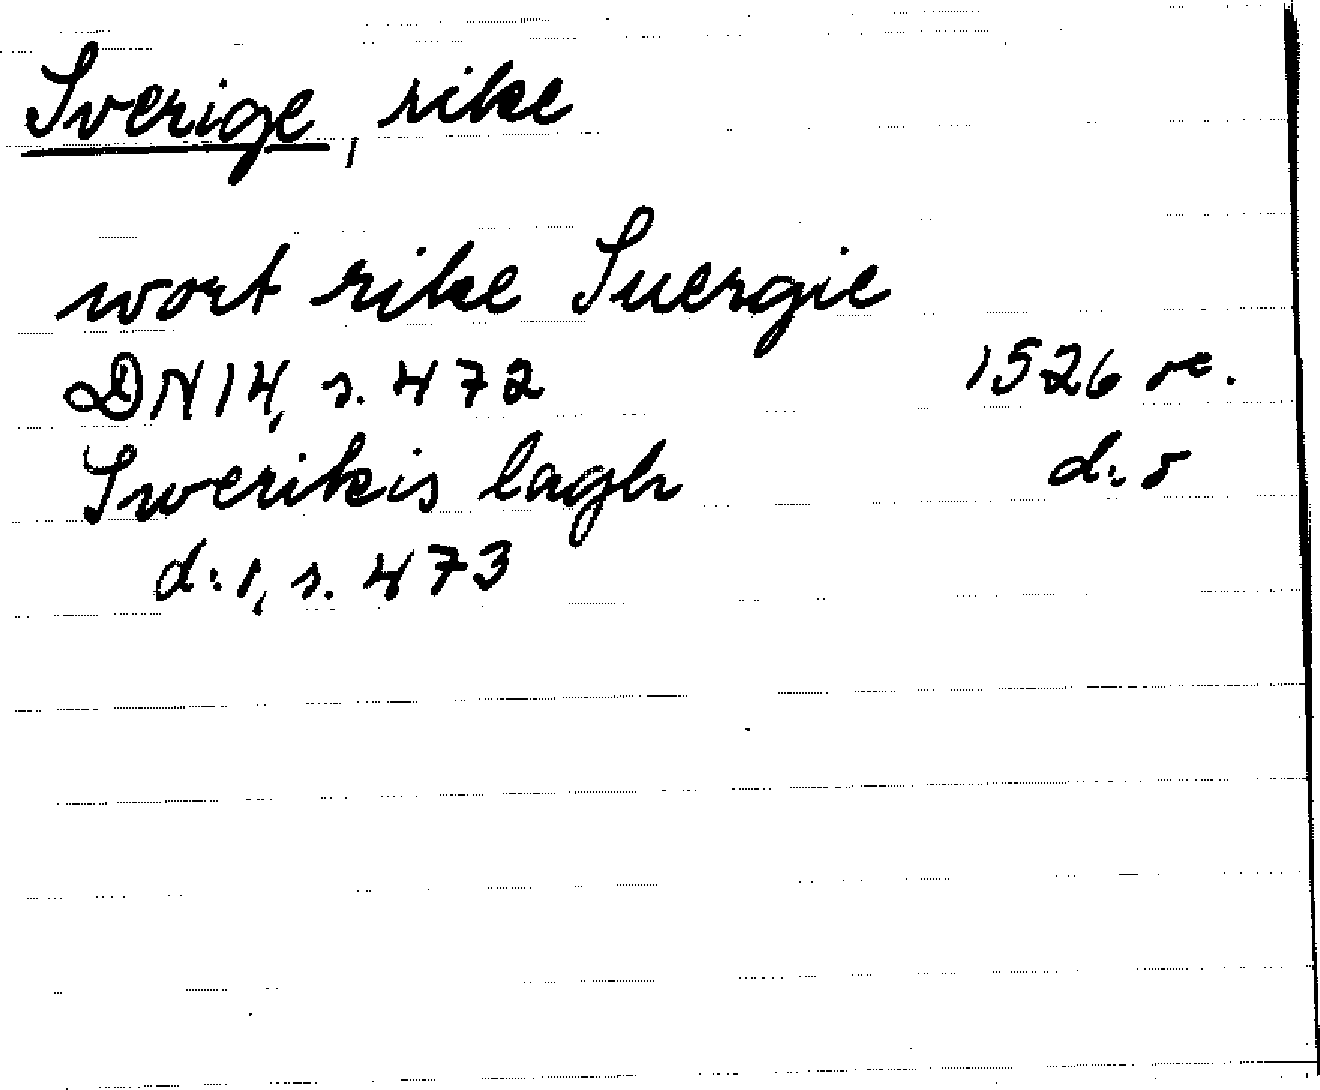 Sverige, rike
wort rike Suergie
DN 14, s. 472 1526 or.
Swerikis lagh d:o
d:o, s. 473